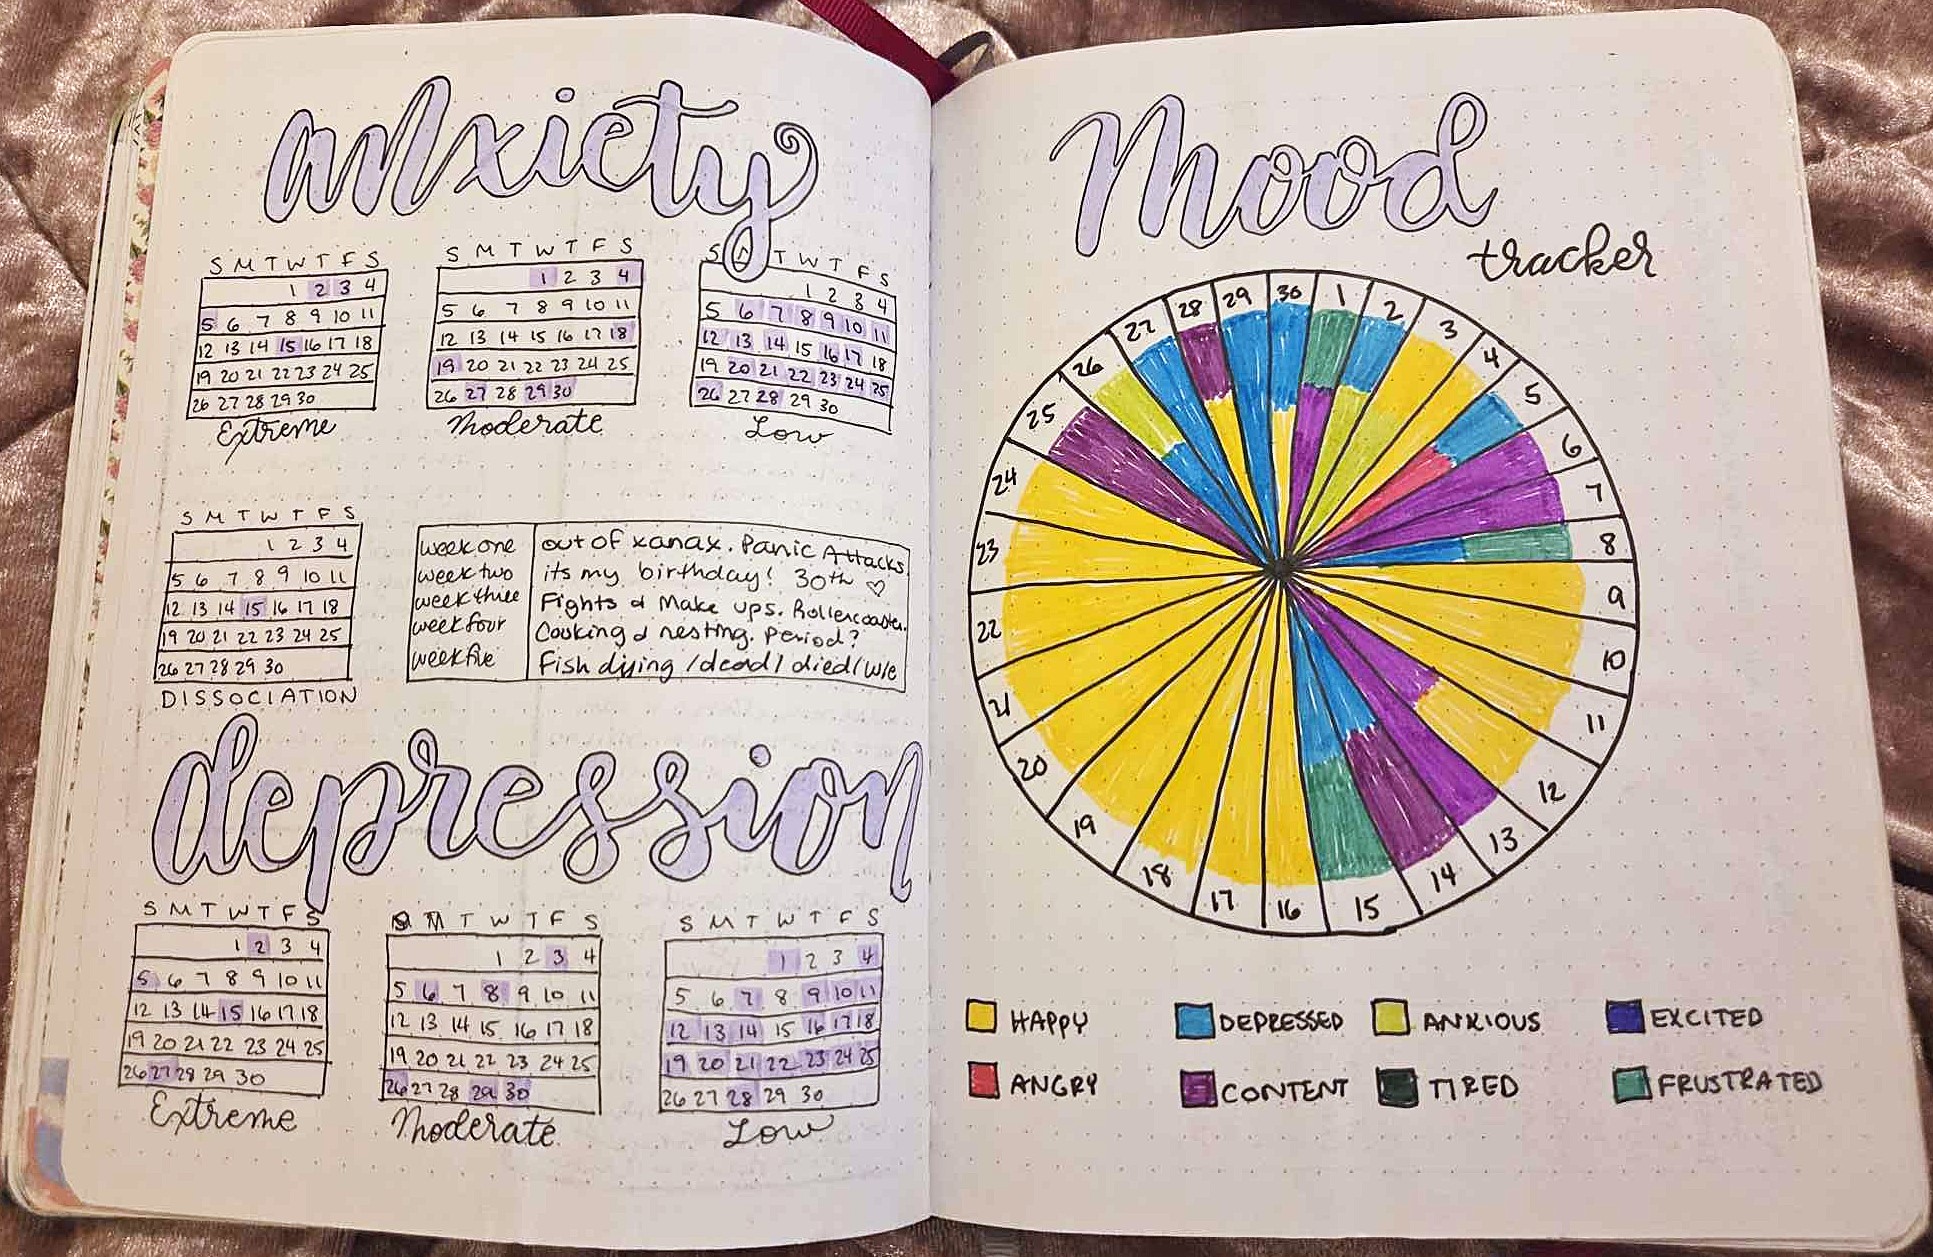 anxiety
S M T W T F S
1 2 3 4
5 6 7 8 9 10 11
12 13 14 15 16 17 18
19 20 21 22 23 24 25
26 27 28 29 30
Extreme
S M T W T F S
1 2 3 4
5 6 7 8 9 10 11
12 13 14 15 16 17 18
19 20 21 22 23 24 25
26 27 28 29 30
Moderate
S M T W T F S
1 2 3 4
5 6 7 8 9 10 11
12 13 14 15 16 17 18
19 20 21 22 23 24 25
26 27 28 29 30
Low
S M T W T F S
1 2 3 4
5 6 7 8 9 10 11
12 13 14 15 16 17 18
19 20 21 22 23 24 25
26 27 28 29 30
DISSOCIATION
week one out of xanax. Panic Attacks.
week two its my birthday! 30th ♡
week three Fights & Make ups. Rollercoaster.
week four Cooking & nesting. Period?
week five Fish dying /dead/ died/ w/e
depression
S M T W T F S
1 2 3 4
5 6 7 8 9 10 11
12 13 14 15 16 17 18
19 20 21 22 23 24 25
26 27 28 29 30
Extreme
S M T W T F S
1 2 3 4
5 6 7 8 9 10 11
12 13 14 15 16 17 18
19 20 21 22 23 24 25
26 27 28 29 30
Moderate
S M T W T F S
1 2 3 4
5 6 7 8 9 10 11
12 13 14 15 16 17 18
19 20 21 22 23 24 25
26 27 28 29 30
Low
Mood
tracker
1
2
3
4
5
6
7
8
9
10
11
12
13
14
15
16
17
18
19
20
21
22
23
24
25
26
27
28
29
30
HAPPY DEPRESSED ANXIOUS EXCITED
ANGRY CONTENT TIRED FRUSTRATED